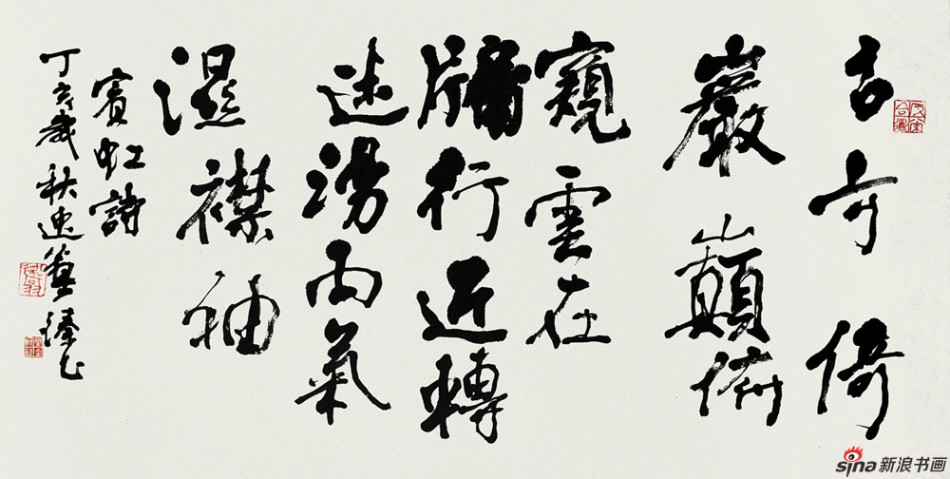 古寺倚
巖巔俯
窺雲在
牖行近轉
迷雨氣
濕襟袖
賓虹詩
丁亥歲秋
sina 新浪书画